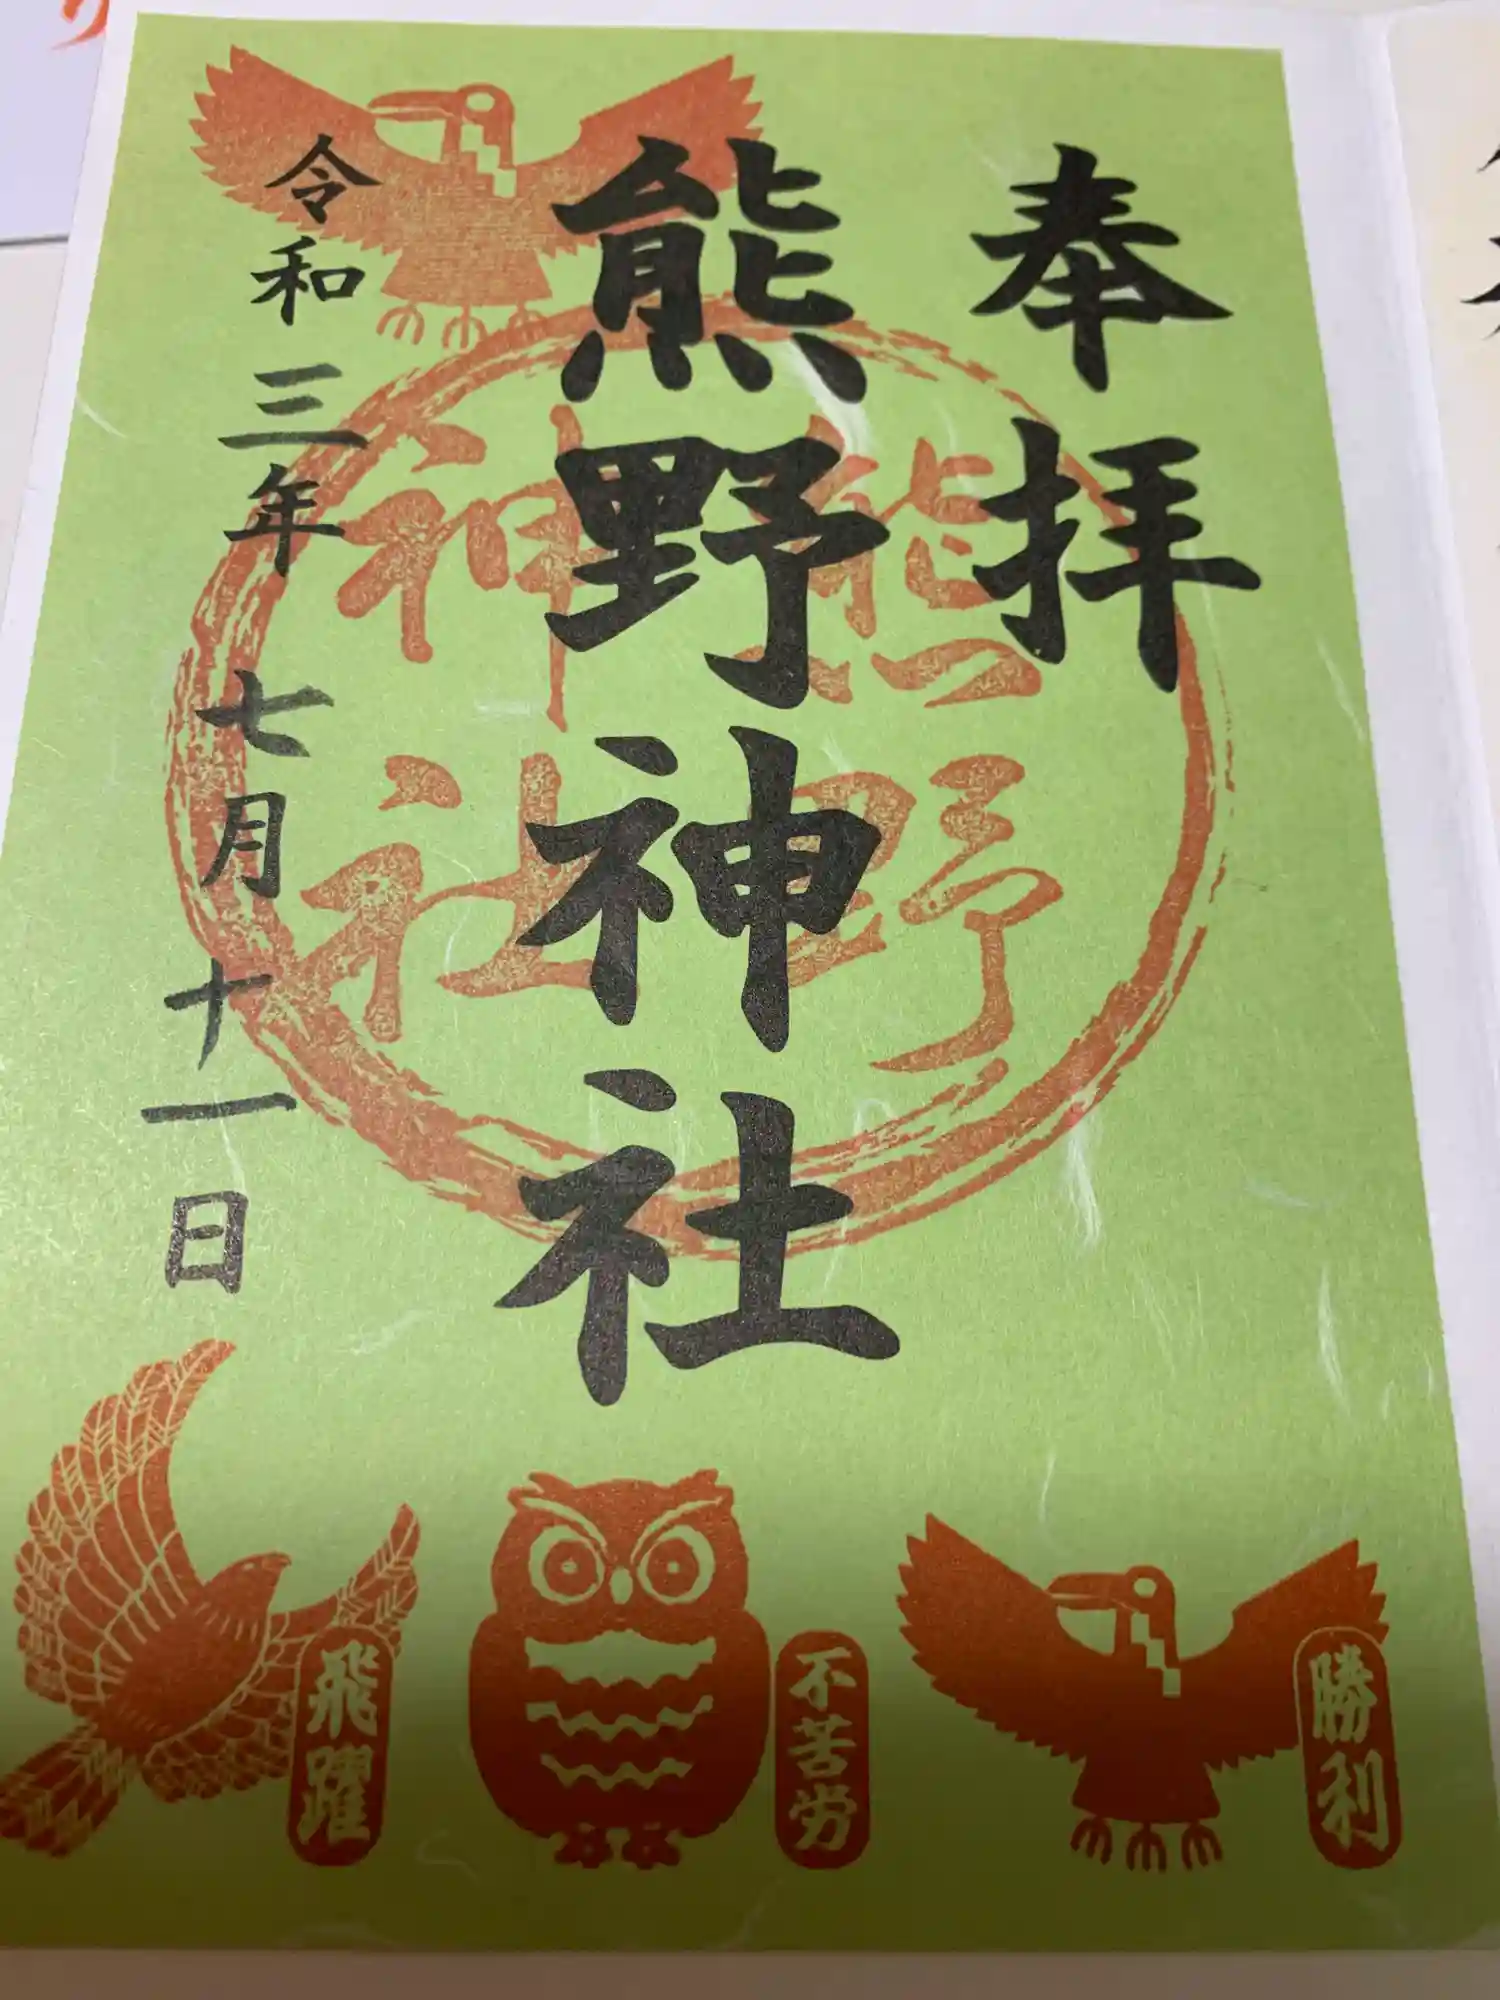 奉拝
熊野神社
熊野
神社
令和三年七月十一日
勝利
不苦労
飛躍
り